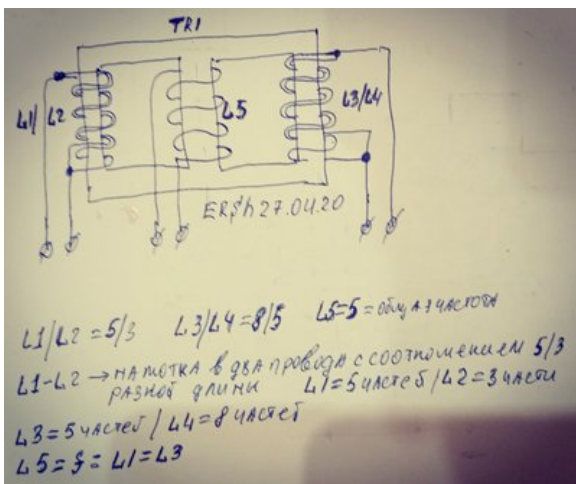 TR1
L1/L2
L5
L3/L4
ERSh 27.04.20
L1/L2 = 5/3 L3/L4 = 8/5 L5=5= общая частота
L1-L2 → намотка в два провода с соотношением 5/3
разной длины L1=5 частей / L2=3 части
L3=5 частей / L4=8 частей
L5=f=L1=L3